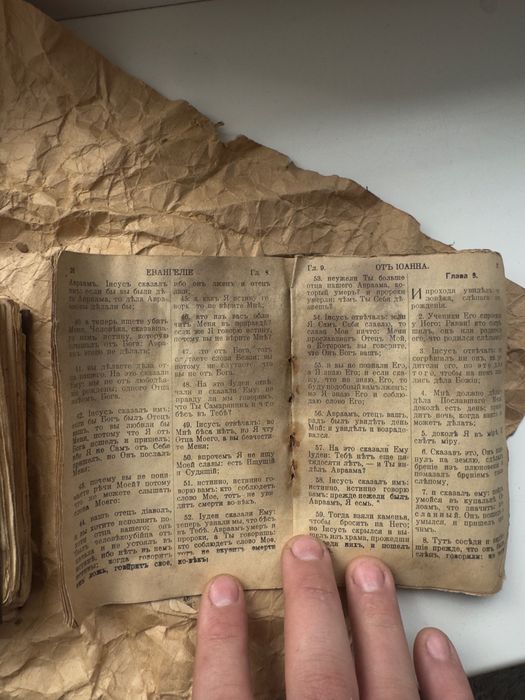 ЕВАНГЕЛІЕ Гл. 8.
Авраамъ. Іисусъ сказалъ
имъ: если бы вы были дѣ
Авраама, то дѣла Авра-
амовы дѣлали бы;
40. а теперь ищете убить
Меня, Человѣка, сказавша-
го вамъ истину, которую
слышалъ отъ Бога: Авра-
амъ этого не дѣлалъ;
41. вы дѣлаете дѣла от-
ца вашего. На это сказали
Ему: мы не отъ любодѣя-
нія рождены; одного Отца
имѣемъ, Бога.
42. Іисусъ сказалъ имъ:
если бы Богъ былъ Отецъ
вашъ, то вы любили бы
Меня, потому что Я отъ
Бога исшелъ и пришелъ;
ибо Я не Самъ отъ Себя
пришелъ, но Онъ послалъ
Меня;
43. почему вы не пони-
маете рѣчи Моей? потому
что не можете слышать
слова Моего;
44. вашъ отецъ діаволъ,
и вы хотите исполнять по-
хоти отца вашего; онъ
былъ человѣкоубійца отъ
начала и не устоялъ въ
истинѣ, ибо нѣтъ въ немъ
истины; когда говоритъ
онъ ложь, говоритъ свое,
ибо онъ лжецъ и отецъ
лжи;
45. а какъ Я истину го-
ворю, то не вѣрите Мнѣ;
46. кто изъ васъ обли-
читъ Меня въ неправдѣ?
если же Я говорю истину,
почему вы не вѣрите Мнѣ?
47. кто отъ Бога, тотъ
слушаетъ слова Божіи; вы
потому не слушаете, что
вы не отъ Бога.
48. На это Іудеи отвѣ-
чали и сказали Ему: не
правду ли мы говоримъ,
что Ты Самарянинъ и что
бѣсъ въ Тебѣ?
49. Іисусъ отвѣчалъ: во
Мнѣ бѣса нѣтъ, но Я чту
Отца Моего, а вы безчести-
те Меня;
50. впрочемъ Я не ищу
Моей славы: есть Ищущій
и Судящій;
51. истинно, истинно го-
ворю вамъ: кто соблюдетъ
слово Мое, тотъ не уви-
дитъ смерти во-вѣкъ.
52. Іудеи сказали Ему:
теперь узнали мы, что бѣсъ
въ Тебѣ. Авраамъ умеръ и
пророки, а Ты говоришь:
кто соблюдетъ слово Мое,
тотъ не вкуситъ смерти
во-вѣкъ;
Гл. 9. ОТЪ ІОАННА.
53. неужели Ты больше
отца нашего Авраама, ко-
торый умеръ? и пророки
умерли: чѣмъ Ты Себя дѣ-
лаешь?
54. Іисусъ отвѣчалъ: если
Я Самъ Себя славлю, то
слава Моя ничто: Меня
прославляетъ Отецъ Мой,
о Которомъ вы говорите,
что Онъ Богъ вашъ;
55. и вы не познали Его,
а Я знаю Его; и если ска-
жу, что не знаю Его, то
буду подобный вамъ лжецъ;
но Я знаю Его и соблю-
даю слово Его;
56. Авраамъ, отецъ вашъ,
радъ былъ увидѣть день
Мой: и увидѣлъ и возрадо-
вался.
57. На это сказали Ему
Іудеи: Тебѣ нѣтъ еще пя-
тидесяти лѣтъ, — и Ты ви-
дѣлъ Авраама?
58. Іисусъ сказалъ имъ:
истинно, истинно говорю
вамъ: прежде нежели былъ
Авраамъ, Я есмь.
59. Тогда взяли каменья,
чтобы бросить на Него;
но Іисусъ скрылся и вы-
шелъ изъ храма, прошедши
посреди нихъ, и пошелъ
Глава 9.
И проходя увидѣлъ че-
ловѣка, слѣпаго отъ
рожденія.
2. Ученики Его спросили
у Него: Равви! кто согрѣ-
шилъ, онъ или родители
его, что родился слѣпымъ?
3. Іисусъ отвѣчалъ: не
согрѣшилъ ни онъ, ни ро-
дители его, но это для
того, чтобы на немъ яви-
лись дѣла Божіи;
4. Мнѣ должно дѣлать
дѣла Пославшаго Меня,
доколѣ есть день; прихо-
дитъ ночь, когда никто не
можетъ дѣлать;
5. доколѣ Я въ мірѣ, Я
свѣтъ міру.
6. Сказавъ это, Онъ плю-
нулъ на землю, сдѣлалъ
бреніе изъ плюновенія и
помазалъ бреніемъ глаза
слѣпому,
7. и сказалъ ему: пойди,
умойся въ купальнѣ Си-
лоамъ, что значитъ: по-
сланный. Онъ пошелъ и
умылся, и пришелъ зря-
чимъ.
8. Тутъ сосѣди и видѣв-
шіе прежде, что онъ былъ
слѣпъ, говорили: не